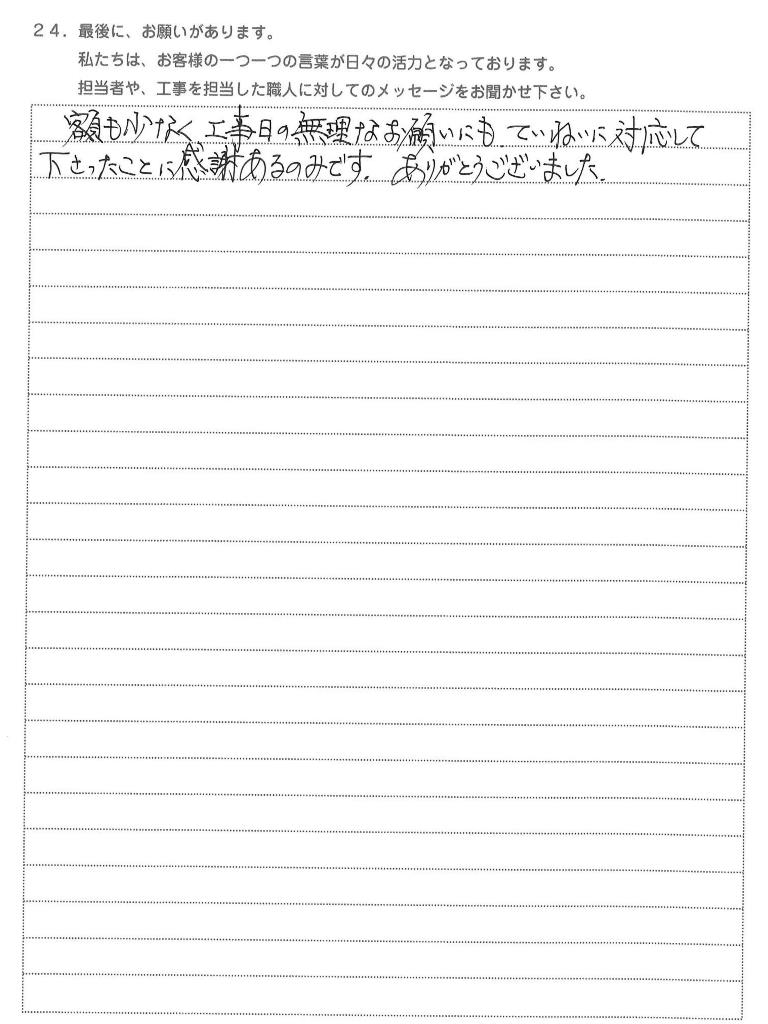 24. 最後に、お願いがあります。
私たちは、お客様の一つ一つの言葉が日々の活力となっております。
担当者や、工事を担当した職人に対してのメッセージをお聞かせ下さい。
額も少なく 工事日の無理なお願いにも ていねいに対応して
下さったことに感謝あるのみです. ありがとうございました.